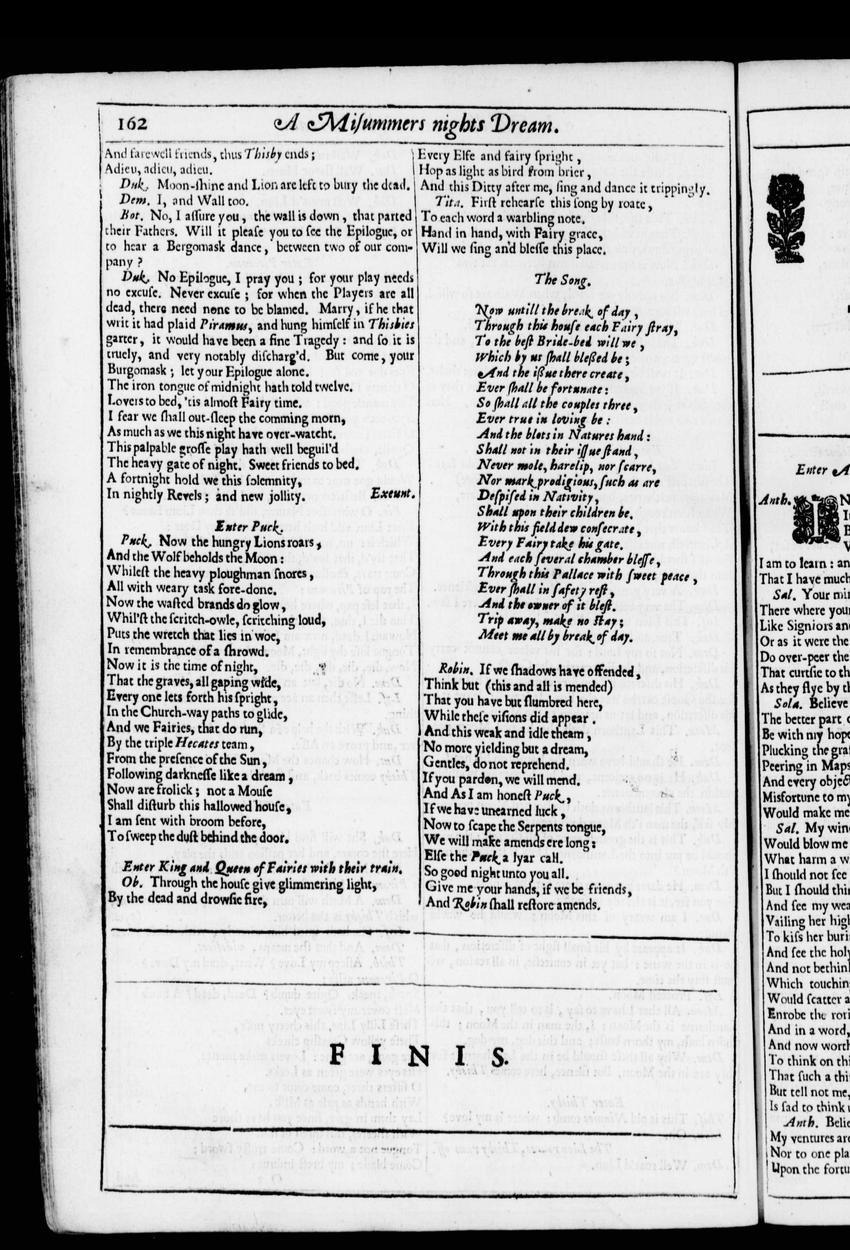 162 A Misummers nights Dream.
And farewell friends, thus Thisby ends;
Adieu, adieu, adieu.
Duk. Moon-shine and Lion are left to bury the dead.
Dem. I, and Wall too.
Bot. No, I assure you, the wall is down, that parted
their Fathers. Will it please you to see the Epilogue, or
to hear a Bergomask dance, between two of our com-
pany?
Duk. No Epilogue, I pray you; for your play needs
no excuse. Never excuse; for when the Players are all
dead, there need none to be blamed. Marry, if he that
writ it had plaid Piramus, and hung himself in Thisbies
garter, it would have been a fine Tragedy: and so it is
truely, and very notably discharg'd. But come, your
Burgomask; let your Epilogue alone.
The iron tongue of midnight hath told twelve.
Lovers to bed, 'tis almost Fairy time.
I fear we shall out-sleep the comming morn,
As much as we this night have over-watcht.
This palpable grosse play hath well beguil'd
The heavy gate of night. Sweet friends to bed.
A fortnight hold we this solemnity,
In nightly Revels; and new jollity. Exeunt.
Enter Puck.
Puck. Now the hungry Lions roars,
And the Wolf beholds the Moon:
Whilest the heavy ploughman snores,
All with weary task fore-done.
Now the wasted brands do glow,
Whil'st the scritch-owle, scritching loud,
Puts the wretch that lies in woe,
In remembrance of a shrowd.
Now it is the time of night,
That the graves, all gaping wide,
Every one lets forth his spright,
In the Church-way paths to glide,
And we Fairies, that do run,
By the triple Hecates team,
From the presence of the Sun,
Following darknesse like a dream,
Now are frolick; not a Mouse
Shall disturb this hallowed house,
I am sent with broom before,
To sweep the dust behind the door.
Enter King and Queen of Fairies with their train.
Ob. Through the house give glimmering light,
By the dead and drowsie fire,
Every Else and fairy spright,
Hop as light as bird from brier,
And this Ditty after me, sing and dance it trippingly.
Tita. First rehearse this song by roate,
To each word a warbling note.
Hand in hand, with Fairy grace,
Will we sing and blesse this place.
The Song.
Now untill the break of day,
Through this house each Fairy stray,
To the best Bride-bed will we,
Which by us shall blessed be;
And the issue there create,
Ever shall be fortunate:
So shall all the couples three,
Ever true in loving be:
And the blots in Natures hand:
Shall not in their issue stand,
Never mole, harelip, nor scarre,
Nor mark prodigious, such as are
Despised in Nativity,
Shall upon their children be.
With this field dew consecrate,
Every Fairy take his gate.
And each several chamber blesse,
Through this Pallace with sweet peace,
Ever shall in safety rest,
And the owner of it blest.
Trip away, make no stay;
Meet me all by break of day.
Robin. If we shadows have offended,
Think but (this and all is mended)
That you have but slumbred here,
While these visions did appear.
And this weak and idle theam,
No more yielding but a dream,
Gentles, do not reprehend.
If you pardon, we will mend.
And As I am honest Puck,
If we have unearned luck,
Now to scape the Serpents tongue,
We will make amends ere long:
Else the Puck a lyar call.
So good night unto you all.
Give me your hands, if we be friends,
And Robin shall restore amends.
FINIS.
Enter A
Anth.
I am to learn: an
That I have much
Sal. Your min
There where your
Like Signiors and
Or as it were the
Do over-peer the
That curtsie to th
As they flye by th
Sola. Believe
The better part o
Be with my hope
Plucking the gras
Peering in Maps
And every object
Misfortune to my
Would make me
Sal. My wind
Would blow me
What harm a w
I should not see
But I should thin
And see my wea
Vailing her high
To kiss her buri
And see the holy
And not bethink
Which touching
Would scatter a
Enrobe the rori
And in a word,
And now worth
To think on thi
That such a thi
But tell not me,
Is sad to think
Anth. Belie
My ventures are
Nor to one pla
Upon the fortu